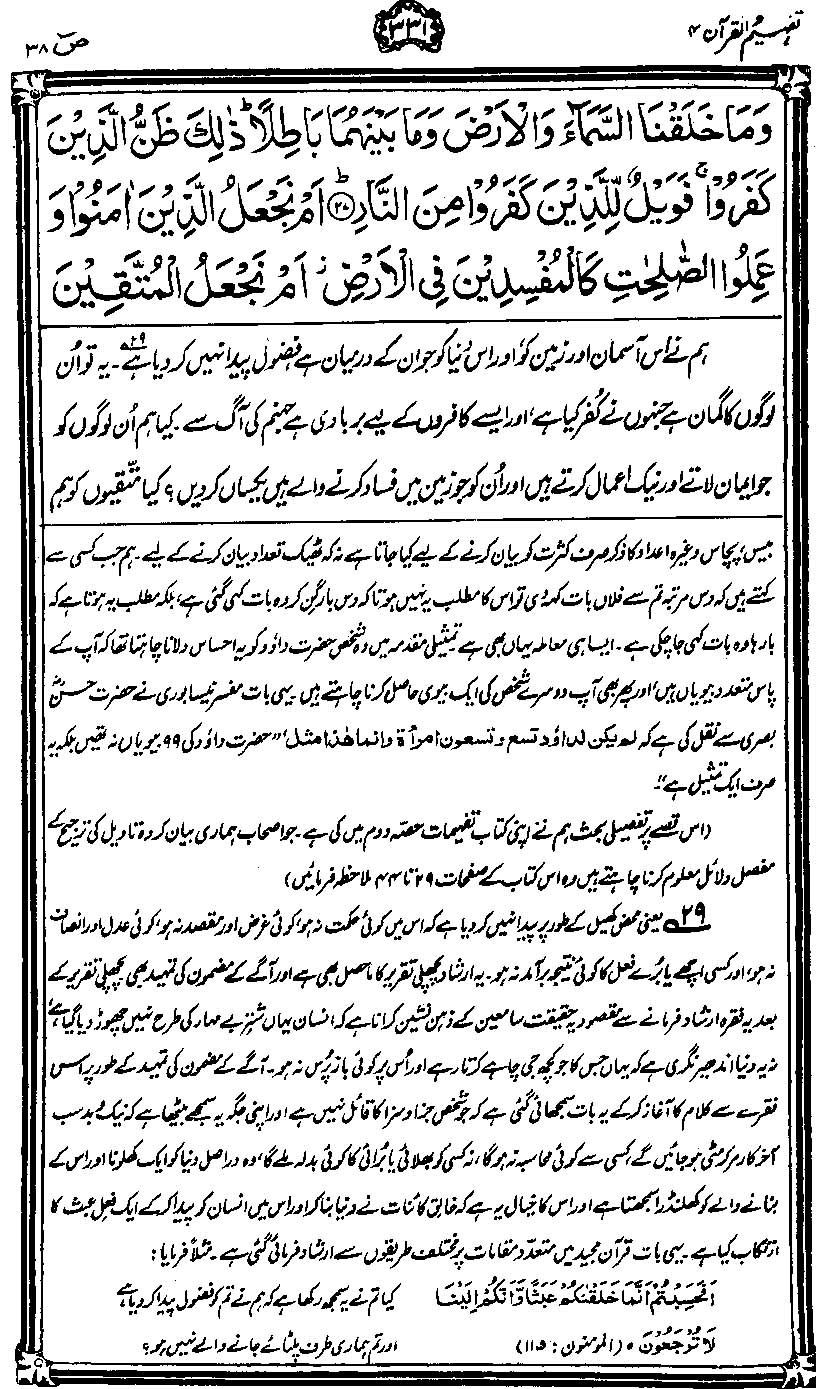 تفہیم القرآن ۴
۳۳۱
صٓ ۳۸
وَمَا خَلَقْنَا السَّمَآءَ وَالْاَرْضَ وَمَا بَيْنَهُمَا بَاطِلًا ؕ ذٰلِكَ ظَنُّ الَّذِيْنَ
كَفَرُوْا ۚ فَوَيْلٌ لِّلَّذِيْنَ كَفَرُوْا مِنَ النَّارِ ؕ ﴿۲۷﴾ اَمْ نَجْعَلُ الَّذِيْنَ اٰمَنُوْا وَ
عَمِلُوا الصّٰلِحٰتِ كَالْمُفْسِدِيْنَ فِى الْاَرْضِ ۫ اَمْ نَجْعَلُ الْمُتَّقِيْنَ
ہم نے اس آسمان اور زمین کو، اور اس دنیا کو جو ان کے درمیان ہے، فضول پیدا نہیں کر دیا ہے۲۹۔ یہ تو اُن
لوگوں کا گمان ہے جنہوں نے کُفر کیا ہے، اور ایسے کافروں کے لیے بربادی ہے جہنم کی آگ سے۔ کیا ہم اُن لوگوں کو
جو ایمان لاتے اور نیک اعمال کرتے ہیں اور اُن کو جو زمین میں فساد کرنے والے ہیں یکساں کر دیں؟ کیا متّقیوں کو ہم
بیس، پچاس وغیرہ اعداد کا ذکر صرف کثرت کو بیان کرنے کے لیے کیا جاتا ہے نہ کہ ٹھیک تعداد بیان کرنے کے لیے۔ ہم جب کسی سے
کہتے ہیں کہ دس مرتبہ تم سے فلاں بات کہہ دی تو اس کا مطلب یہ نہیں ہوتا کہ دس بار گِن کر وہ بات کہی گئی ہے، بلکہ مطلب یہ ہوتا ہے کہ
بارہا وہ بات کہی جا چکی ہے۔ ایسا ہی معاملہ یہاں بھی ہے تمثیلی مقدمہ میں وہ شخص حضرت داؤد کو یہ احساس دلانا چاہتا تھا کہ آپ کے
پاس متعدد بیویاں ہیں، اور پھر بھی آپ دوسرے شخص کی ایک بیوی حاصل کرنا چاہتے ہیں۔ یہی بات مفسر نیسابوری نے حضرت حسنؒ
بصری سے نقل کی ہے کہ لم یکن لداؤد تسع و تسعون امرأۃ وانما ھٰذا مثل، “حضرت داؤد کی ۹۹ بیویاں نہ تھیں بلکہ یہ
صرف ایک تمثیل ہے”۔
(اس قصے پر تفصیلی بحث ہم نے اپنی کتاب تفہیمات حصّہ دوم میں کی ہے۔ جو اصحاب ہماری بیان کردہ تاویل کی ترجیح کے
مفصل دلائل معلوم کرنا چاہتے ہیں وہ اس کتاب کے صفحات ۲۹ تا ۴۴ ملاحظہ فرمائیں)
۲۹ یعنی محض کھیل کے طور پر پیدا نہیں کر دیا ہے کہ اس میں کوئی حکمت نہ ہو، کوئی غرض اور مقصد نہ ہو، کوئی عدل اور انصاف
نہ ہو، اور کسی اچھے یا بُرے فعل کا کوئی نتیجہ برآمد نہ ہو۔ یہ ارشاد پچھلی تقریر کا ماحصل بھی ہے اور آگے کے مضمون کی تمہید بھی۔ پچھلی تقریر کے
بعد یہ فقرہ ارشاد فرمانے سے مقصود یہ حقیقت سامعین کے ذہن نشین کرانا ہے کہ انسان یہاں شترِ بے مہار کی طرح نہیں چھوڑ دیا گیا ہے،
نہ یہ دنیا اندھیر نگری ہے کہ یہاں جس کا جو کچھ جی چاہے کرتا رہے اور اُس پر کوئی باز پُرس نہ ہو۔ آگے کے مضمون کی تمہید کے طور پر اس
فقرے سے کلام کا آغاز کر کے یہ بات سمجھائی گئی ہے کہ جو شخص جزا و سزا کا قائل نہیں ہے اور اپنی جگہ یہ سمجھے بیٹھا ہے کہ نیک و بد سب
آخر کار مر کر مٹی ہو جائیں گے، کسی سے کوئی محاسبہ نہ ہوگا، نہ کسی کو بھلائی یا بُرائی کا کوئی بدلہ ملے گا، وہ دراصل دنیا کو ایک کھلونا اور اس کے
بنانے والے کو کھلنڈرا سمجھتا ہے اور اس کا خیال یہ ہے کہ خالقِ کائنات نے دنیا بنا کر اور اس میں انسان کو پیدا کر کے ایک فعلِ عبث کا
ارتکاب کیا ہے۔ یہی بات قرآن مجید میں متعدد مقامات پر مختلف طریقوں سے ارشاد فرمائی گئی ہے۔ مثلاً فرمایا:
اَفَحَسِبْتُمْ اَنَّمَا خَلَقْنٰكُمْ عَبَثًا وَّاَنَّكُمْ اِلَيْنَا کیا تم نے یہ سمجھ رکھا ہے کہ ہم نے تم کو فضول پیدا کر دیا ہے
لَا تُرْجَعُوْنَ ہ (المومنون: ۱۱۵) اور تم ہماری طرف پلٹائے جانے والے نہیں ہو؟